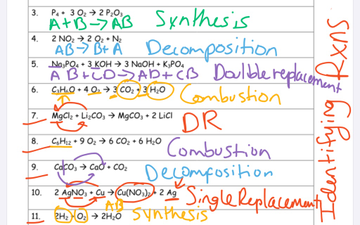 3. P₄ + 3 O₂ → 2 P₂O₃
A + B → AB Synthesis
4. 2 NO₂ → 2 O₂ + N₂
AB → B + A Decomposition
5. Na₃PO₄ + 3 KOH → 3 NaOH + K₃PO₄
AB + CD → AD + CB Double replacement
6. C₃H₈O + 4 O₂ → 3 CO₂ + 3 H₂O
Combustion
7. MgCl₂ + Li₂CO₃ → MgCO₃ + 2 LiCl
DR
8. C₆H₁₂ + 9 O₂ → 6 CO₂ + 6 H₂O
Combustion
9. CaCO₃ → CaO + CO₂
Decomposition
10. 2 AgNO₃ + Cu → Cu(NO₃)₂ + 2 Ag
AB Single Replacement
11. 2H₂ O₂ → 2H₂O synthesis
Identifying Rxns